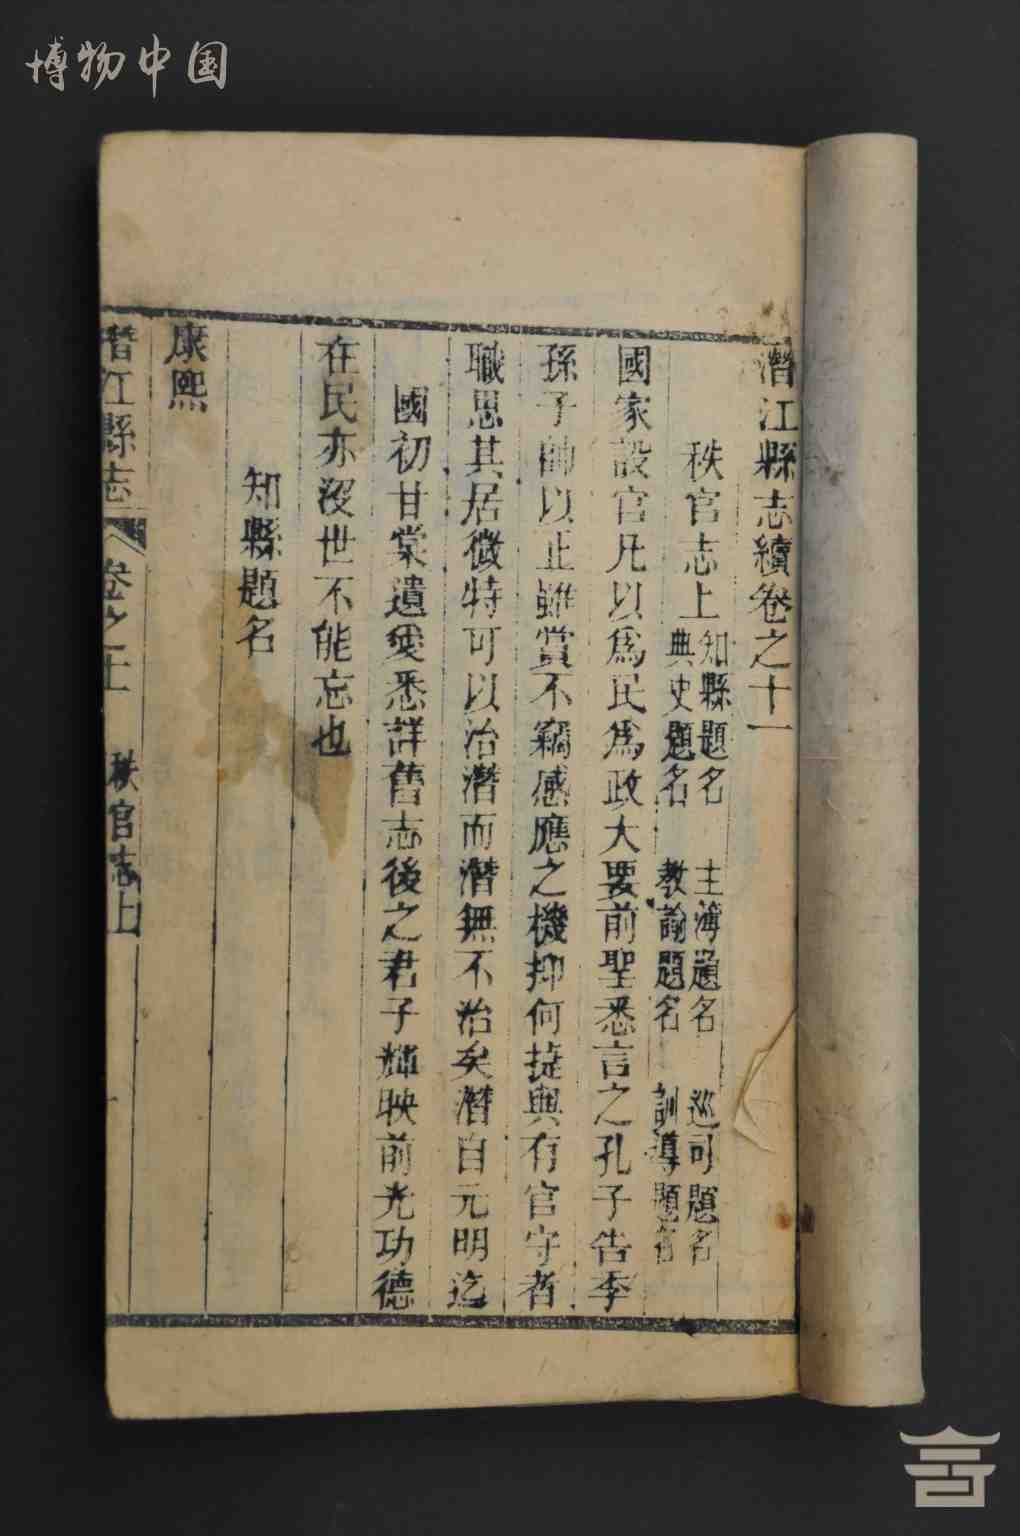 博物中国
潛江縣志續卷之十一
秩官志上 知縣題名 主簿題名 巡司題名
典史題名 教諭題名 訓導題名
國家設官凡以為民為政大要前聖悉言之孔子告季
孫子帥以正雖賞不竊感應之機抑何捷與有官守者
職思其居微特可以治潛而潛無不治矣潛自元明迄
國初甘棠遺愛悉詳舊志後之君子輝映前光功德
在民亦沒世不能忘也
知縣題名
康熙
潛江縣志 卷之十 秩官志上